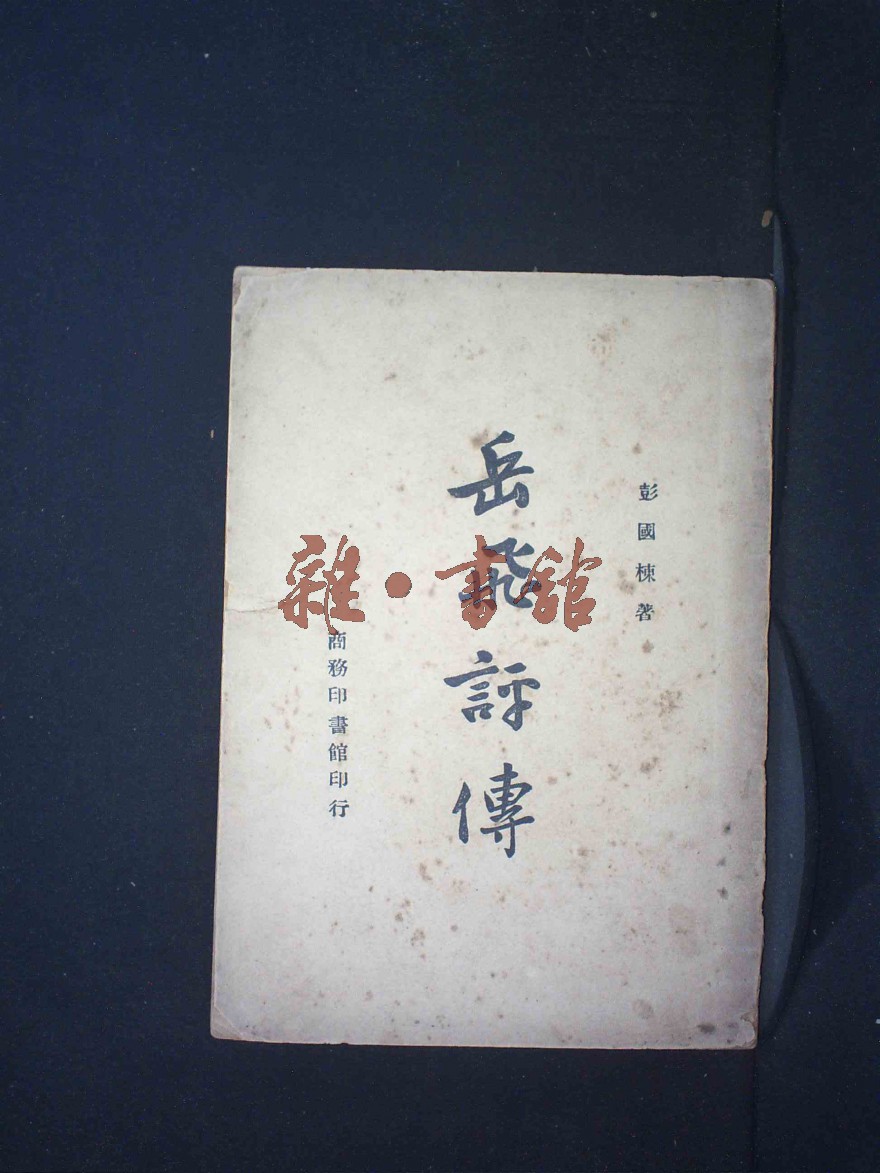 彭國棟著
岳飛評傳
商務印書館印行
雜·書館